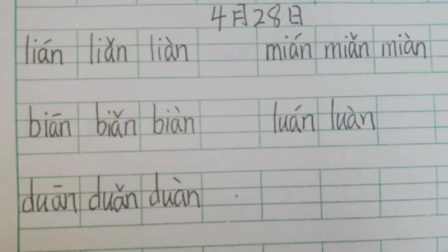 4月28日
lián liǎn liàn mián miǎn miàn
biān biǎn biàn luán luàn
duān duǎn duàn